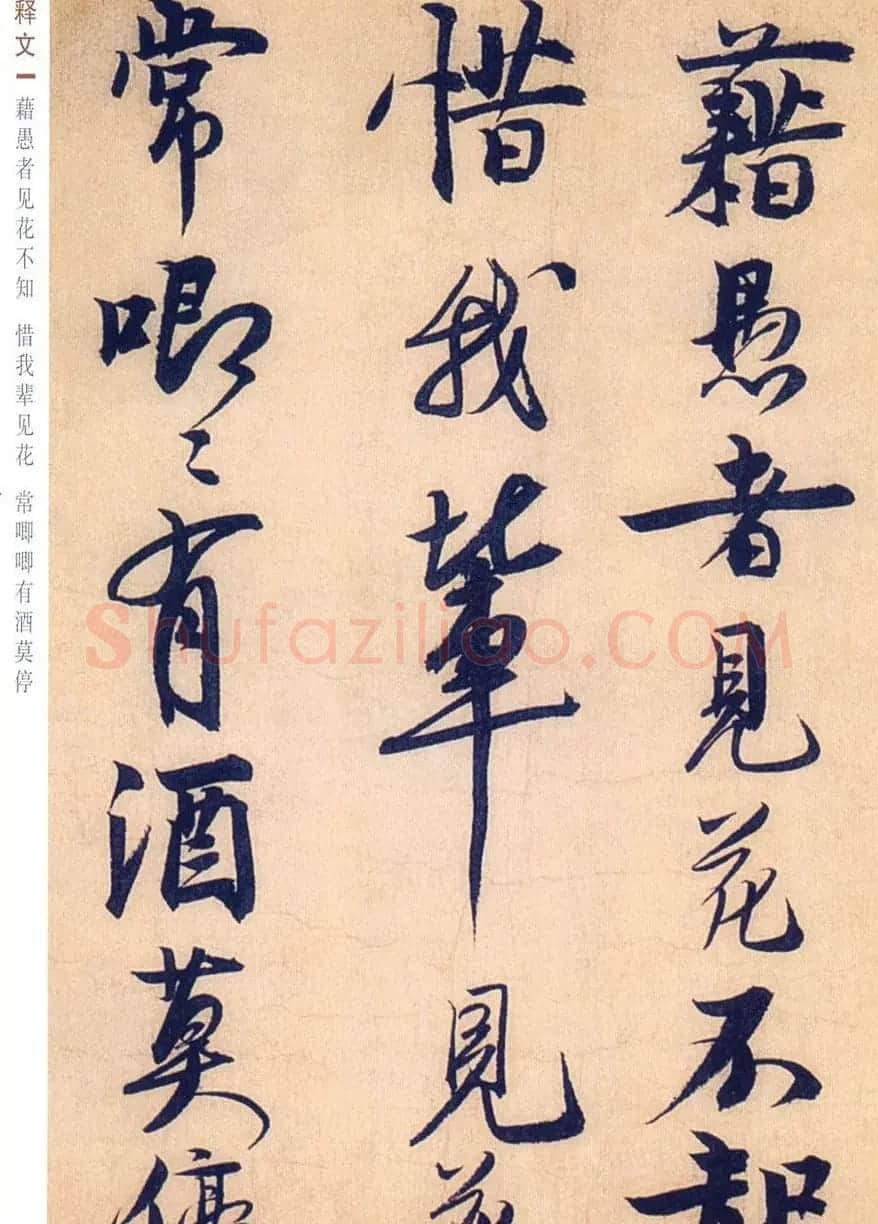 藉愚者見花不知
惜我輩見花
常唧〻有酒莫停
释文
藉愚者见花不知 惜我辈见花 常唧唧有酒莫停
Shufaziliao.COM